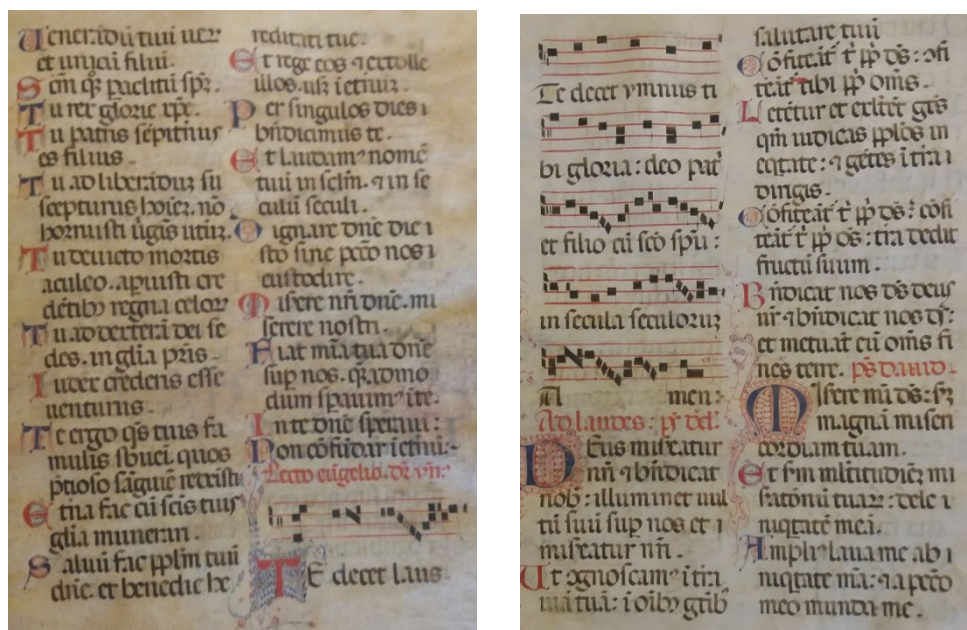 Venerādū tuū uer̄
et unicū filiū.
Scm̄ q̄ꝫ paclitū spm̄.
Tu rex glorie xp̄e.
Tu patris sēpitnus
es filius.
Tu ad liberādūꝫ su
scepturus hoiēꝫ. nō
horruisti ūgīs utūꝫ.
Tu deuicto mortis
aculeo. apuisti cre
dētibꝫ regna celoꝝ
Tu ad dexterā dei se
des. in glīa pr̄is.
Iudex crederis esse
uenturus.
Te ergo qs̄ tuis fa
mulis sbueī. quos
p̄tioso sāguīe redeisti
Et̄na fac cū scīs tuis
glīa munerari.
Saluū fac pplm̄ tuū
dn̄e. et benedic he
reditati tue.
Et rege eos ⁊ extolle
illos. usꝫ ī et̄nū.
Per singulos dies ī
bn̄dicimus te.
Et laudam⁹ nomē
tuū in sclm̄. ⁊ in se
culū seculi.
Dignare dn̄e die ī
sto sine pcc̄o nos ī
custodire.
Misere nr̄i dn̄e. mi
serere nostri.
Fiat mīa tua dn̄e
suꝑ nos. qͣdmo
dum spauim⁹ ī te.
In te dn̄e speraui:
Non cōfūdar ī et̄nū.
Lectō euḡelio. dr̄ yn̄.
TE decet laus.
Te decet ymnus ti
bi gloria: deo pat͛
et filio cū scō spū:
in secula seculoruꝫ
A men:
Ad laudes: ps̄ del.
Deus misēatur
nr̄i ⁊ bn̄dicat
nob̄: illuminet uul
tū suū suꝑ nos et ī
miseatur nr̄i.
Ut ɔgnoscam⁹ ī t̄ra
uiā tuā: ī oībꝫ gētibꝫ
salutare tuū
Cōfiteāt̄ t̄ pp̄ ds̄: ɔfi
teāt̄ tibi pp̄ oms̄.
Letētur et exltēt gēs
qm̄ iudicas pplōs in
eq̄tate: ⁊ gētes ī t̄ra ī
dirigis.
Cōfiteāt̄ t̄ pp̄ ds̄: cōfi
teāt̄ t̄ pp̄ os̄: t̄ra dedit
fructū suum.
Bn̄dicat nos ds̄ deus
nr̄ ⁊ bn̄dicat nos ds̄:
et metuāt eū oms̄ fi
nes terre. ps̄ dauid.
Miserē mī ds̄: sꝫ
magnā miseri
cordiam tuam.
Et sm̄ mltitudīēꝫ mi
satōnū tuaꝝ: dele ī
niq̄tatē meā.
Ampli⁹ laua me ab ī
niq̄tate mā: ⁊ a pcc̄o
meo munda me.